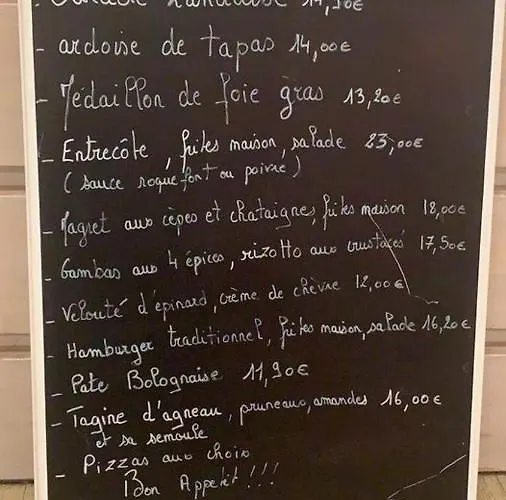 - ardoise de tapas 14,00€
- Médaillon de foie gras 13,20€
- Entrecôte, frites maison, salade 23,00€
(sauce roquefort ou poivre)
- Magret aux cèpes et chataignes, frites maison 18,00€
- Gambas aux 4 épices, rizotto aux crustacés 17,50€
- Velouté d'épinard, crème de chèvre 12,00€
- Hamburger traditionnel, frites maison, salade 16,20€
- Pate Bolognaise 11,90€
- Tagine d'agneau, pruneaux, amandes 16,00€
et sa semoule
- Pizzas aux choix
Bon Appetit !!!